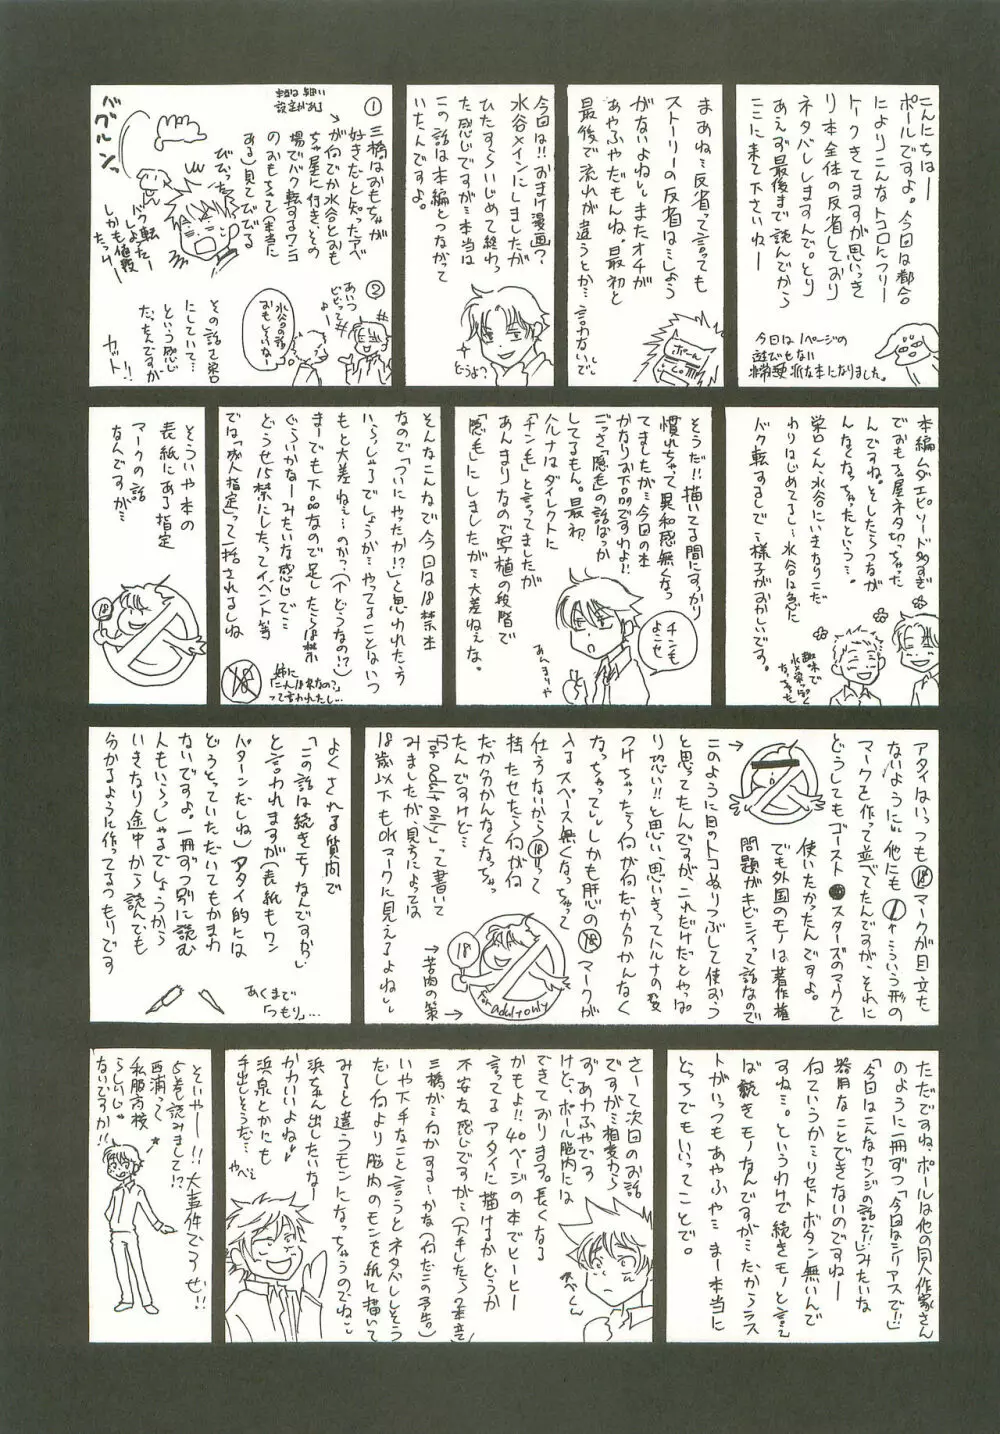 こんにちはー
ポールですよ。今回は都合
によりこんなトコロにフリー
トークきてますが思いっき
り本全体の反省しており
ネタバレしますんで。とり
あえず最後まで読んでから
ここに来て下さいねー
今回は1ページの
遊びもない
硬派な本になりました。
まあね…反省って言っても
ストーリーの反省は…しょう
がないよね。またオチが
あやふやだもんね。最初と
最後で流れが違うとか…言わないで。
ポール
今回は!!おまけ漫画?
水谷メインにしましたが
ひたすらいじめて終わっ
た感じですが…本当は
この話は本編とつながって
いたんですよ。
どうよ?
①
三橋はおもちゃが
好きだと知った阿べ
が何でか水谷とおも
ちゃ屋に行き、その
場でバク転するワンコ
のおもちゃ(本当に
ある)見てびびる
びびった
バグルン
バク転したー
しかも値段
たっけー
②
あいつ
ビビってょー
水谷の話
おもしろいなー
その話を栄口
にしていて…
という感じ
だったんですが
カット!!
本編ムダエピソード多すぎ
でおもちゃ屋ネタ切っちゃった
んですね。としたらつながん
なくなっちゃったという…。
栄口くん、水谷にいきなりこだ
わりはじめてるし…水谷は急に
バク転するしで…様子がおかしいです。
そうだ!!描いてる間にすっかり
慣れちゃって異和感無くなっ
てましたが…今回の本
かなりお下品ですわよ!!
ごっさ「陰毛」の話ばっか
してるもん。最初、
ハルナはダイレクトに
「チン毛」と言ってましたが
あんまりなので写植の段階で
「陰毛」にしましたが…大差ねぇな。
チンも
よこせ
あんまりや
そんなこんなで今回は18禁本
なので「ついにやったか!?」と思われたた方
いらっしゃるでしょうが…やってることはいつ
もと大差ねぇ…のか?(どうなの!?)
まーでも下品なので足したら18禁
ぐらいかなーみたいな感じで…
どうせ15禁にしたってイベント等
では「成人指定」って一括されるしね
姉に
「こんな18禁なの?」
って言われたし…
そういや本の
表紙にある指定
マークの話
なんですが…
18
アタイはいっつも⑱マークが目立た
ないように他にもこういう形の
マークを作って並べてたんですが、それに
どうしてもゴースト●スターズのマークを
使いたかったんですよ。
でも外国のモノは著作権
問題がキビシイって話なので
このように目のトコぬりつぶして使おう
と思ってたんですが、これだけだとやっぱ
り恐い!!と思い、思いきってハルナの髪
つけちゃったら何が何だか分かんなく
なっちゃって。しかも肝心の⑱マークが
入るスペース無くなっちゃって
仕方ないから⑱って
持たせたら何が何
だか分かんなくなっちゃっ
たんですけど…
「for adult only」って書いて
みましたが、見ちによっては
18歳以下もOKマークに見えるよね。
18
for adult only
→苦肉の策→
よくされる質問で
「この話は続きモノなんですか」
と言われますが(表紙もワン
パターンだしね)アタイ的には
どうとっていただいてもかまわ
ないですよ。一冊ずつ別に読む
人もいらっしゃるでしょうから
いきなり途中から読んでも
分かるように作ってるつもりです
あくまで
「つもり」…
ただですね、ポールは他の同人作家さん
のように一冊ずつ「今日はシリアスで!!」
「今日はこんなカンジの話で!!」みたいな
器用なことできないのですねー
何ていうか…リセットボタン無いんで
すね…。というわけで続きモノと言え
ば続きモノなんですが…だからラス
トがいつもあやふや…まー本当に
どっちでもいいってことで。
さーて次回のお話
ですが…相変わら
ずあわふやです
けどポール脳内には
できております。長くなる
かもよ!!40ページの本でヒーヒー
言ってるアタイに描けるかどうか
不安な感じですが…(下手したら2本立)
三橋が…何かする…かな(何だこの予告。)
いや下手なこと言うとネタバレしそう
だし何より脳内のモンを紙に描いて
みると違うモンになっちゃうのでね…
浜ちゃん出したいなー
かわいいよね♪
浜泉とかにも
手出しそうだ…やべぇ
べくん
そいやー!!大事件でぃせ!!
5巻読みまして!?
西浦って
私服高校
らしいじゃ
ないですか!!